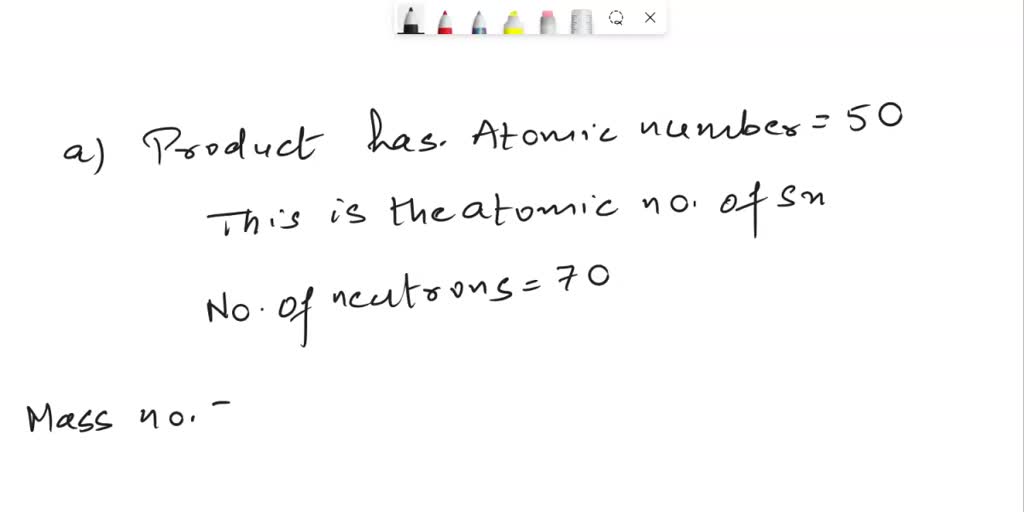 a) Product has. Atomic number = 50
This is the atomic no. of sn
No. of neutrons = 70
Mass no. -